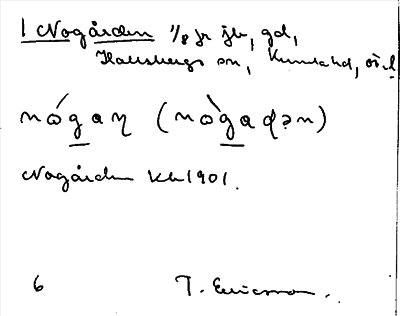 1 Nogården 1/8 jr jb, gd,
Hallsbergs sn, Kumla hd, ör. l
nógaŋ (nògadən)
Nogården Kh 1901.
6 T. Ericsson.